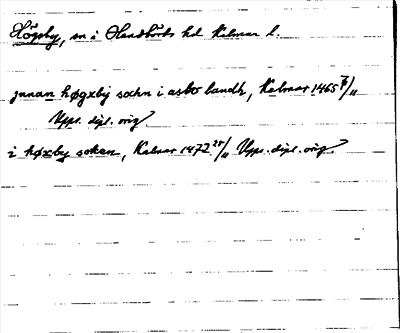 Högsby, sn i Handbörds hd Kalmar l.
jnnan høgxby sokn i asbo landh, Kalmar 1465 7/11
Upps. dipl. orig.
i høxby soken, Kalmar 1472 21/11 Upps. dipl. orig.